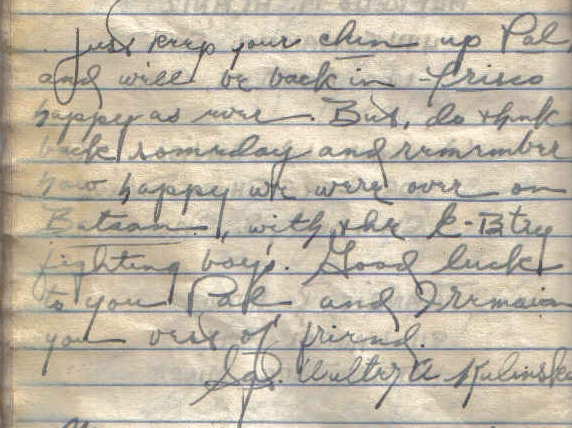 Just keep your chin up Pal,
and will be back in Frisco
happy as ever. But, do think
back someday and remember
how happy we were over on
Bataan, with the K-Btry
fighting boys. Good luck
to you Pal and I remain
you best of friend.
Sgt. Walter A Kulinski